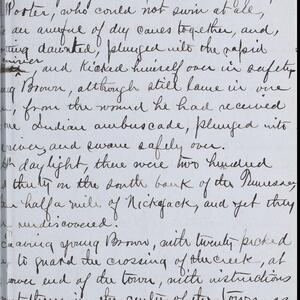 Porter, who could not swim at all,
an armful of dry canes together, and,
nothing daunted, plunged into the rapid
and kicked himself over in safety
ng Brown, although still lame in one
from the wound he had received
Indian ambuscade, plunged into
river, and swam safely over.
th daylight, there were two hundred
d thirty on the south bank of the Tennessee
half a mile of Nickajack, and yet they
undiscovered.
Leaving young Brown, with twenty picked
to guard the crossing of the creek, at
lower end of the town, with instructions